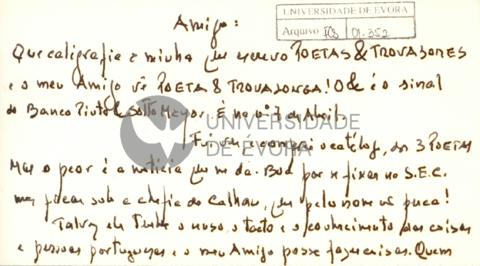 Amigo:
UNIVERSIDADE DE EVORA
Arquivo FCS 01.352
Que caligrafia é minha que escrevo POETAS & TROVADORES
e o meu Amigo vê POETA & TROVADORGA! O & é o sinal
do Banco Pinto & Sotto Mayor. É no nº 7 de Abril.
Fui ver e comprei o catálogo dos 3 POETAS
Mas o pior é a notícia que me dá. Boa por se fixar no S.E.C.
mas sob a chefia do Calhau, que pelo nome se puca!
Talvez ele tenha o nuso, o tacto e o conhecimento das coisas
e pessoas portuguesas e o meu Amigo possa fazer coisas. Quem
UNIVERSIDADE
DE ÉVORA